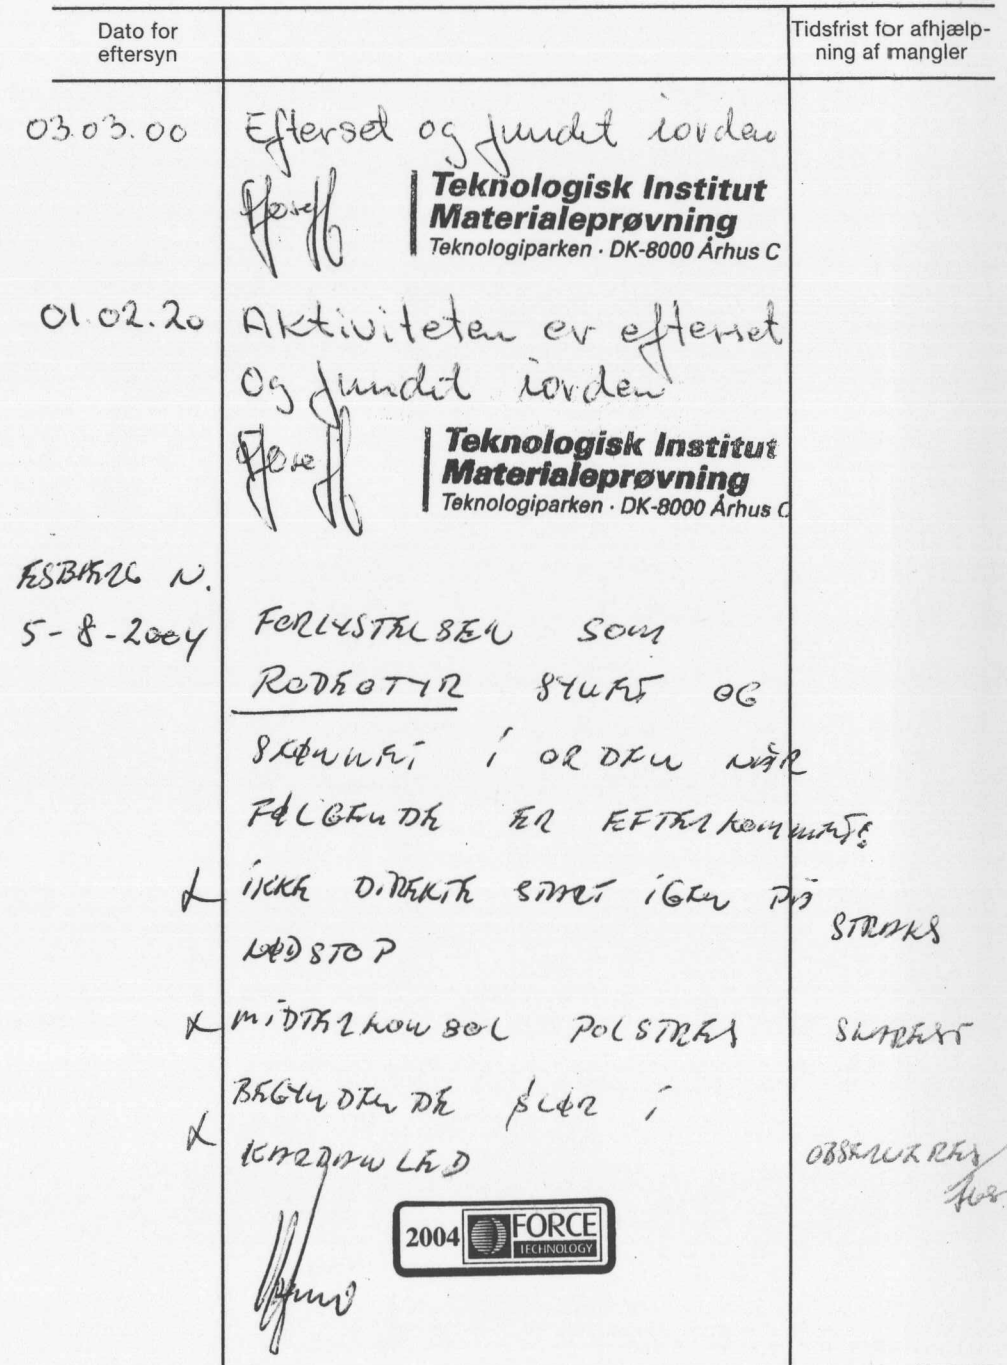 Dato for
eftersyn
Tidsfrist for afhjælp-
ning af mangler
03.03.00 Efterset og fundet iorden
Teknologisk Institut
Materialeprøvning
Teknologiparken · DK-8000 Århus C
01.02.20 Aktiviteten er efterset
og fundet iorden
Teknologisk Institut
Materialeprøvning
Teknologiparken · DK-8000 Århus C
ESBJERG N.
5-8-2004 FORLYSTELSEN SOM
RODEOTYR SYNET OG
SKØNNET I ORDEN NÅR
FØLGENDE ER EFTERKOMMET:
X IKKE DIREKTE START IGEN PÅ
NØDSTOP STRAKS
X MIDTERKONSOL POLSTRES SNAREST
BEGYNDENDE SLØR I
X KARDANLED OBSERVERES
2004 FORCE
TECHNOLOGY